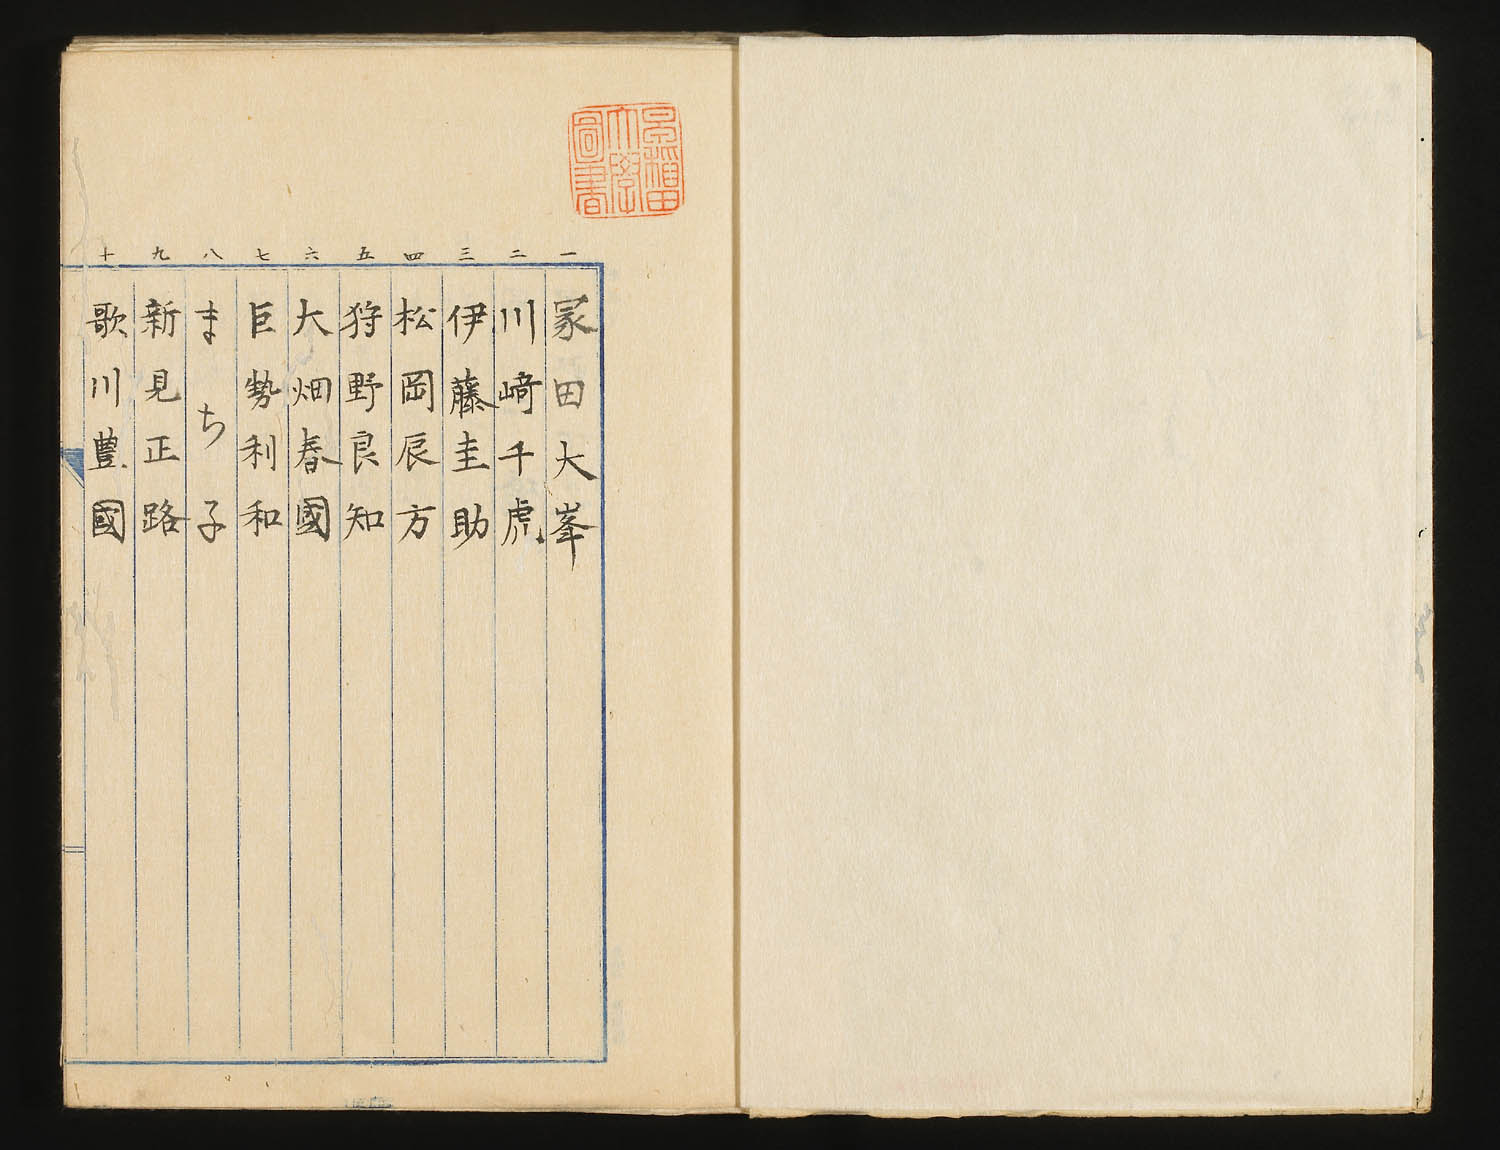 早稲田
大學
圖書
一
冢田大峯
二
川﨑千虎
三
伊藤圭助
四
松岡辰方
五
狩野良知
六
大畑春國
七
巨勢利和
八
まち子
九
新見正路
十
歌川豊國